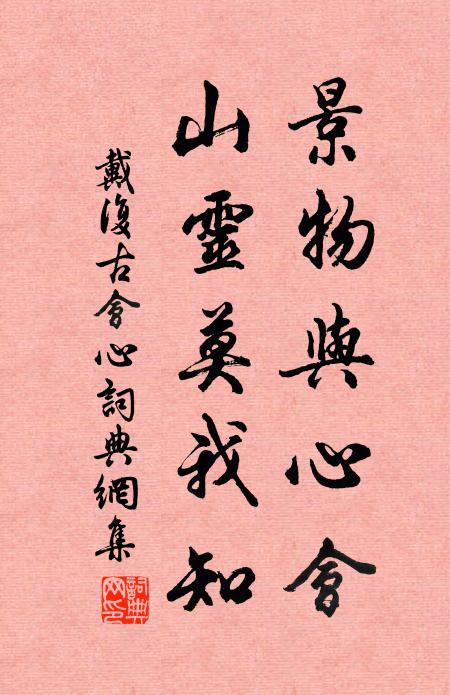 景物與心會
山靈莫我知
戴復古會心詞典網集
詞典
网印